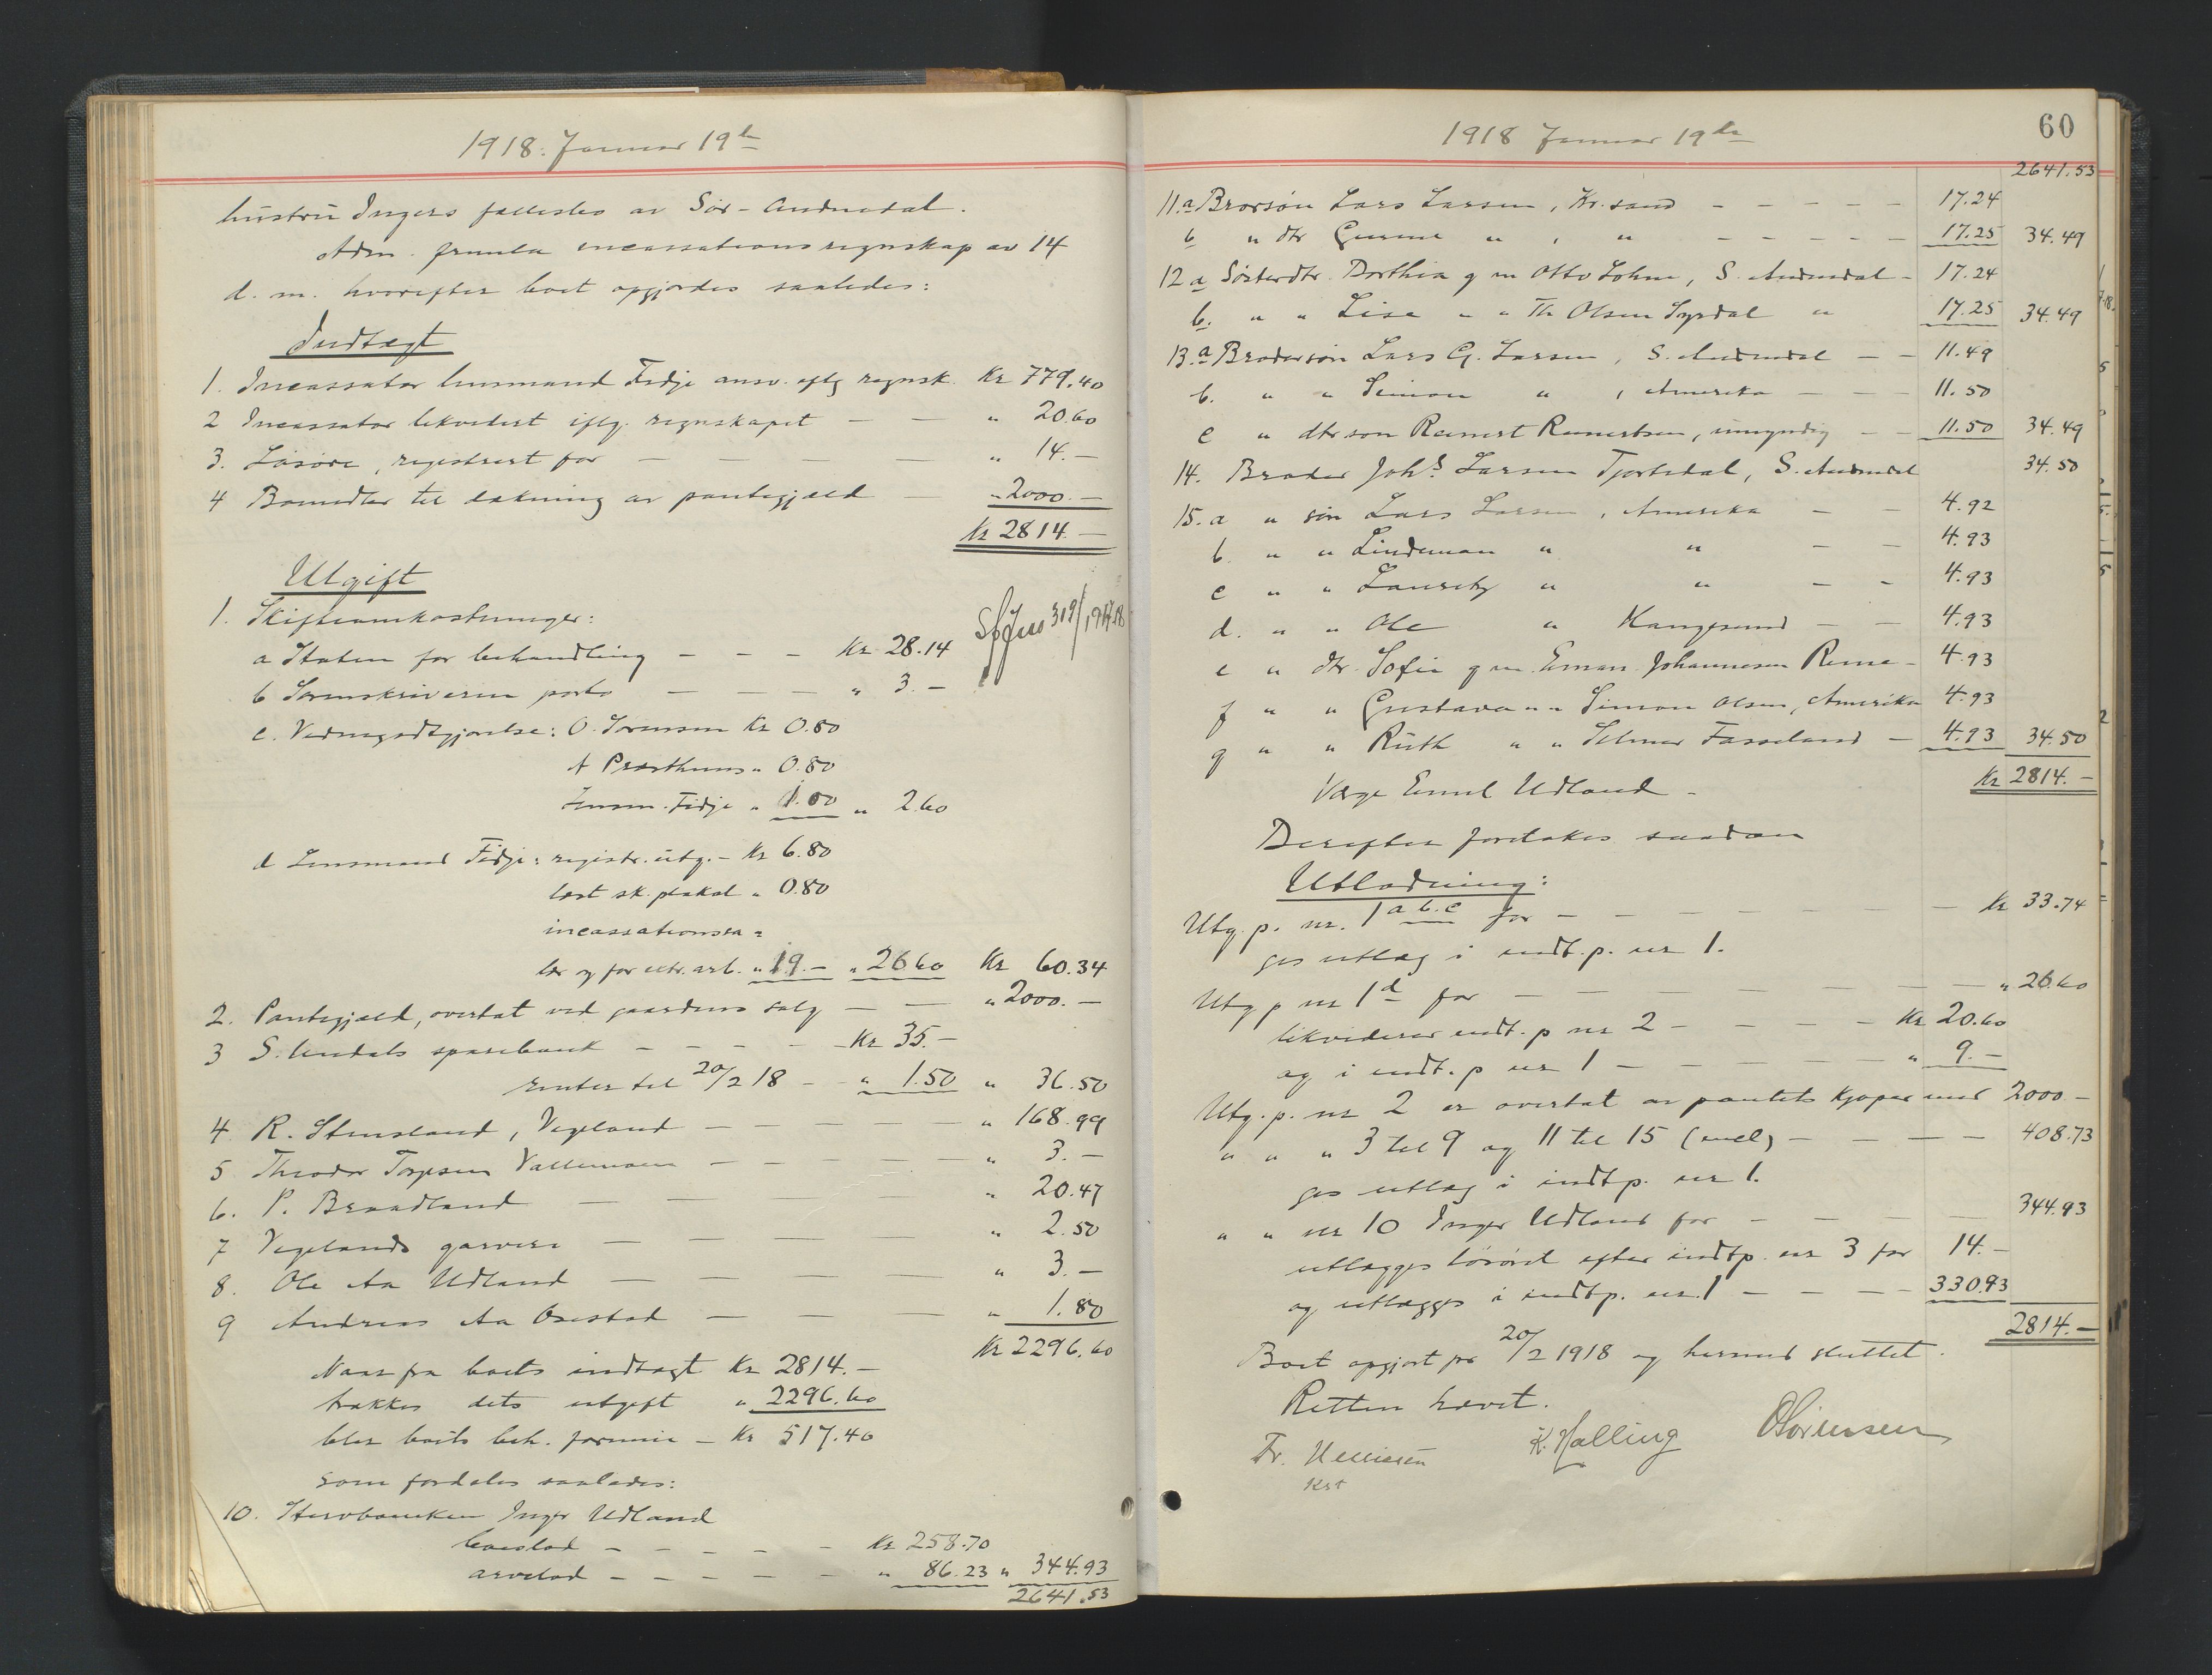 1918. Januar 19de
hustru Ingers fællesbo av Sør-Audnedal.
Adm. fremla incassationsregnskap av 14
d. m. hvorefter boet opgjordes saaledes:
Indtægt
1. Incassator lensmand Fidje ansv. eflg regnsk. Kr 779.40
2 Incassator likvidert iflg. regnskapet — — " 20.60
3. Løsøre, registrert for — — — — " 14.—
4 Bomidler til dækning av pantegjæld — " 2000.—
Kr 2814.—
Utgift
1. Skifteomkostninger:
a Staten for behandling — — — Kr 28.14
b Sorenskriveren porto — — — " 3.—
c. Vidnegodtgjørelse: O. Sørensen Kr 0.80
A Præsthuus " 0.80
Lensm. Fidje " 1.00 " 2.60
d Lensmand Fidje: registr. utg. — Kr 6.80
læst sk. plakat " 0.80
incassationssa=
lær og for extr. arb. " 19.— " 26.60 Kr 60.34
2. Pantegjæld, overtat ved gaardens salg — — " 2000.—
3 S. Undals sparebank — — — — Kr 35.—
renter til 20/2 18 — " 1.50 " 36.50
4 R. Stensland, Vigeland — — — — — " 168.99
5 Theodor Torjesen Vallemoen — — — — " 3.—
6. P. Braadland — — — — " 20.47
7 Vigelands garveri — — — — " 2.50
8. Ole Aa Udland — — — — " 3.—
9 Andreas Aa Osestad — — — " 1.80
Kr 2296.60
Naar fra boets indtægt Kr 2814.—
trækkes dets utgift " 2296.60
blir boets beh. formue — Kr 517.40
som fordeles saaledes:
10. Stervboenken Inger Udland
boeslod — — — — — Kr 258.70
arvelod — — — — — " 86.23 " 344.93
2641.53
1918 Januar 19de
60
2641.53
11.a Brorsøn Lars Larsen, Kr.sand — — — — — 17.24
b " dtr Gurine " , " — — — — — 17.25 34.49
12 a Søsterdtr. Dorthia g m Otto Lohne, S. Audnedal — 17.24
b. " " Lise " " Th Olsen Syrdal " 17.25 34.49
13.a Brodersøn Lars G. Larsen, S. Audnedal — — 11.49
b. " " Simon " , Amerika — — — 11.50
c " dtrsøn Reinert Reinertsen, umyndig — — 11.50 34.49
14. Broder Johs. Larsen Tjortedal, S. Audnedal 34.50
15. a " søn Lars Larsen, Amerika — — 4.92
b " " Lindeman " " — — 4.93
c " " Lauritz " " — — 4.93
d. " " Ole " Haugesund — — 4.93
e " dtr. Sofie g m. Eman. Johannesen Reme — 4.93
f " " Gustava " " Simon Olsen, Amerika 4.93
g " " Ruth " " Selmer Fasseland — 4.93 34.50
Kr 2814.—
Værge Emil Udland —
Derefter foretokes saadan
Utlodning:
Utg. p. nr. 1 a b. c for — — — — — — Kr 33.74
gis utlæg i indt. p. nr 1.
Utg p nr 1 d for — — — — — — " 26.60
likviderer indt. p nr 2 — — — — Kr 20.60
og i indt. p nr 1 — — — — — " 9.—
Utg. p. nr 2 er overtat av pantets kjøper med 2000.—
" " " 3 til 9 og 11 til 15 (incl) — — — — 408.73
gis utlæg i indtp. nr 1.
" " nr 10 Inger Udland for — — — — 344.93
utlægges løsøret efter indtp. nr 3 for 14.—
og utlægges i indtp. nr. 1 — — — — 330.93
2814.—
Boet opgjort pr 20/2 1918 og hermed sluttet.
Retten hævet.
Fr. K. Halling OSørensen
Kst